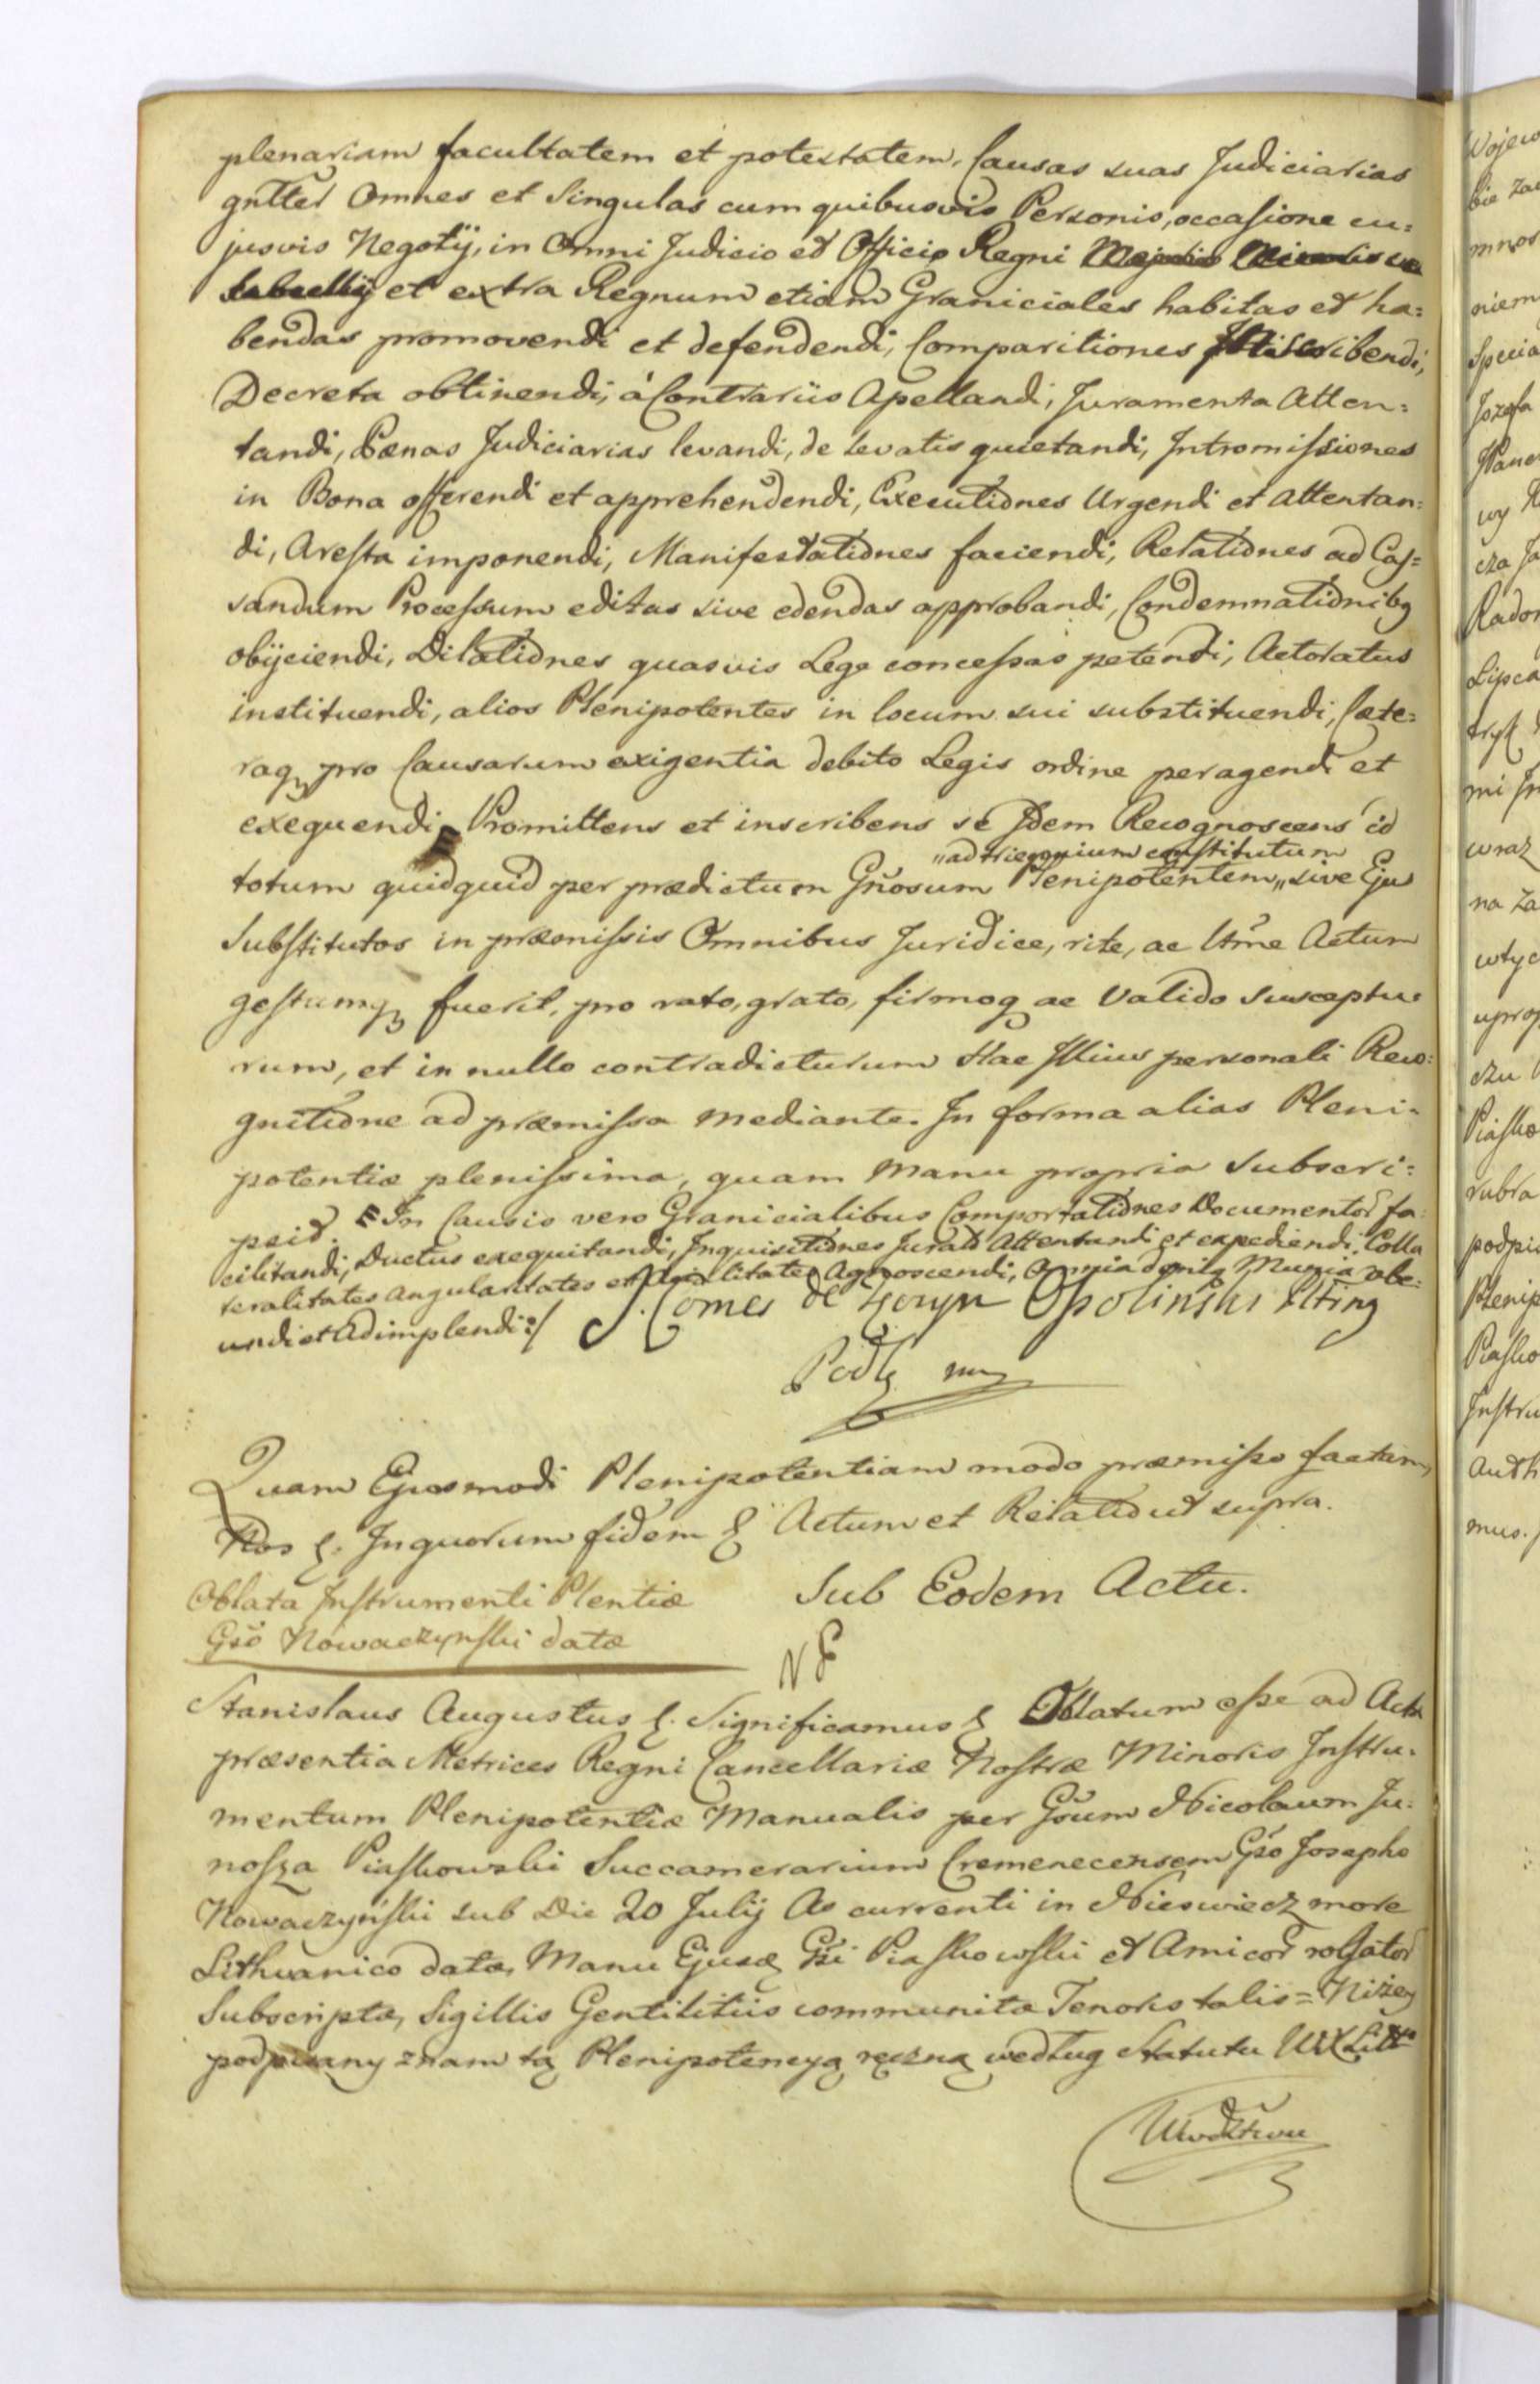 plenariam facultatem et potestatem, Causas suas Judiciarias
gn̄tter Omnes et Singulas cum quibusvis Personis, occasione cu=
jusvis Negotÿ, in Omni Judicio et Officio Regni
et extra Regnum etiam Graniciales habitas et ha=
bendas promovendi et defendendi, Comparitiones scribendi,
Decreta obtinendi, à Contrariis Apellandi, Juramenta Atten=
tandi, Pænas Judiciarias levandi, de levatis quietandi, Intromissiones
in Bona offerendi et apprehendendi, Executiones Urgendi et attentan=
di, Aresta imponendi, Manifestationes faciendi, Relationes ad Cas=
sandum Processum editas sive edendas approbandi, Condemnationibg
obÿciendi, Dilationes quasvis Lege concessas petendi, Actoratus
instituendi, alios Plenipotentes in locum sui substituendi, Cæte=
raqꝫ pro Causarum exigentia debito Legis ordine peragendi et
exequendi Promittens et inscribens se Idem Recognoscens id
„ad triennium constitutum
totum quidquid per prædictum Gn̄osum Plenipotentem„ sive Ejus
Substitutos in præmissis Omnibus Juridice, rite, ac ltm̄e Actum
gestumqꝫ fuerit, pro rato, grato, firmoq ac Valido susceptu=
rum, et in nullo contradicturum Hac Illius personali Reco=
gnitione ad præmissa mediante. In forma alias Pleni=
potentiæ plenissima, quam Manu propria Subscri=
psit. In Causis vero Granicialibus Comportationes Documentor̄ fa=
cilitandi, Ductus exequitandi, Inquisitiones Jurato Attentandi et expediendi, Colla
teralitates angularitates et Agnoscendi, Omnia Munia obe=
undi et Adimplendi:/ J. Comes de Opoliński
Podk mp
Quam Ejusmodi Plenipotentiam modo præmisso factam,
Nos &. In quorum fidem & Actum et Relatio ut supra.
Oblata Instrumenti Plentiæ Sub Eodem Actu.
Gso Nowaczyński datæ
Stanislaus Augustus &. Significamus & Oblatum esse ad Acta
præsentia Metrices Regni Cancellariæ Nostræ Minoris Instru=
mentum Plenipotentiæ Manualis per Gsum Nicolaum Ju=
nosza Piaskowski Succamerarium Cremenecensem Gso Josepho
Nowaczyński sub Die 20 Julij Ao currenti in Nieswiecz more
Lithuanico datæ, Manu Ejusd Gsi Piaskowski et Amicor̄ rogator̄
Subscriptæ, Sigillis Gentilitiis communitæ Tenoris talis= Niżey
podpisany znam tą Plenipotencyą ręczną według Statutu WX Litt